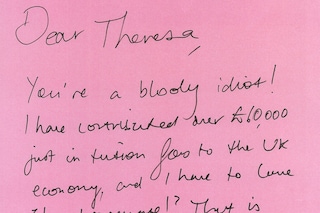 Dear Theresa,
You're a bloody idiot!
I have contributed over £60,000
just in tuition fees to the UK
economy, and I have to leave
That is